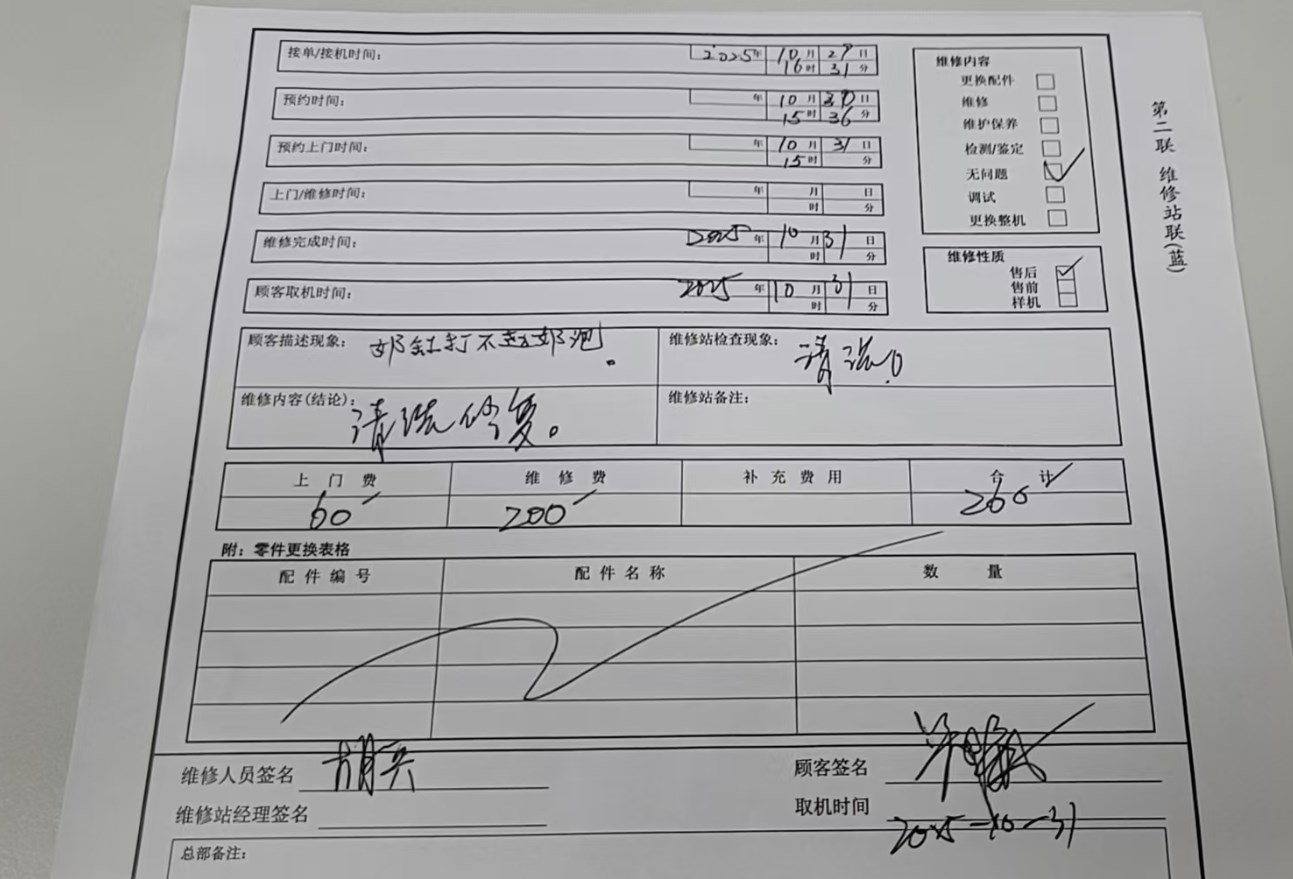 接单/接机时间： 2025年 10月 29日 16时 31分
预约时间： 年 10月 30日 15时 36分
预约上门时间： 年 10月 31日 15时 分
上门/维修时间： 年 月 日 时 分
维修完成时间： 2025年 10月 31日 时 分
顾客取机时间： 2025年 10月 31日 时 分
维修内容
更换配件
维修
维护保养
检测/鉴定
无问题
调试
更换整机
维修性质
售后
售前
样机
第二联 维修站联(蓝)
顾客描述现象： 奶缸打不起奶泡。
维修站检查现象： 清洗。
维修内容(结论)： 清洗修复。
维修站备注：
上门费 维修费 补充费用 合计
60 200 260
附：零件更换表格
配件编号 配件名称 数量
维修人员签名 胡兵
顾客签名
维修站经理签名
取机时间 2025-10-31
总部备注：